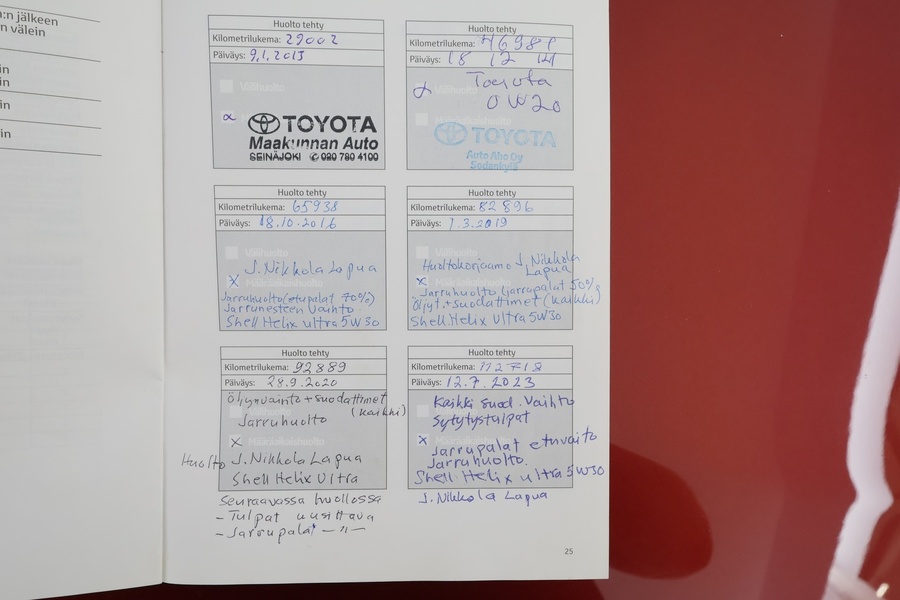 :n jälkeen
n välein
in
in
in
in
Huolto tehty
Kilometrilukema: 29002
Päiväys: 9.1.2013
Välihuolto
TOYOTA
Maakunnan Auto
SEINÄJOKI 020 780 4100
Huolto tehty
Kilometrilukema: 46981
Päiväys: 18 12 14
Toyota
0W20
TOYOTA
Auto Aho Oy
Sodankylä
Huolto tehty
Kilometrilukema: 65938
Päiväys: 18.10.2016
Välihuolto
J. Nikkola Lapua
X
Jarruhuolto (etupalat 70%)
Jarrunesteen Vaihto
Shell Helix ultra 5W30
Huolto tehty
Kilometrilukema: 82896
Päiväys: 1.3.2019
Huoltokorjaamo J. Nikkola
Lapua
X Määräaikaishuolto
Jarruhuolto (jarrupalat 50%
Öljyt.+suodattimet (kaikki)
Shell Helix Ultra 5W30
Huolto tehty
Kilometrilukema: 92889
Päiväys: 28.9.2020
Öljynvaihto + suodattimet
(kaikki)
Jarruhuolto
X Määräaikaishuolto
Huolto J. Nikkola Lapua
Shell Helix Ultra
Seuraavassa huollossa
- Tulpat uusittava
- Jarrupalat — " —
Huolto tehty
Kilometrilukema: 112718
Päiväys: 12.7.2023
Kaikki suod. Vaihto
Sytytystulpat
X Määräaikaishuolto
Jarrupalat etuvaihto
Jarruhuolto.
Shell Helix ultra 5W30
J. Nikkola Lapua
25